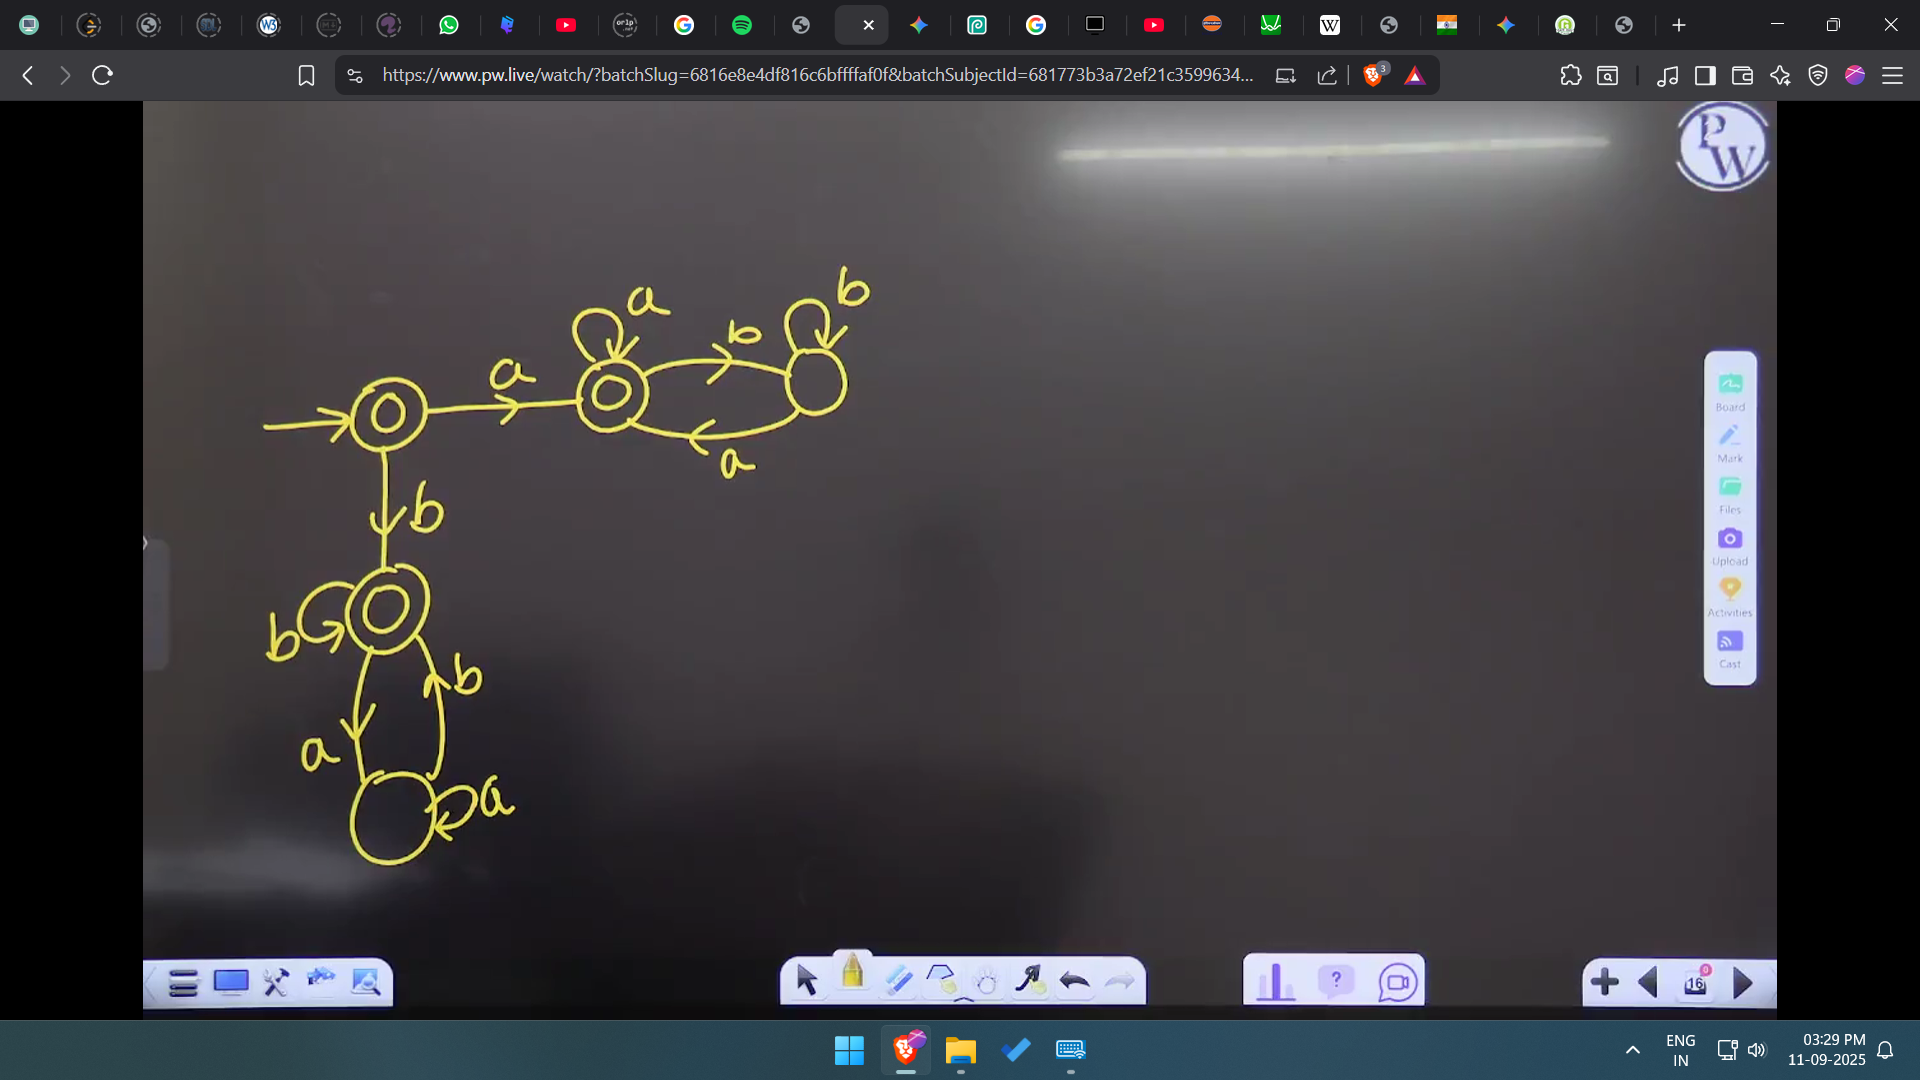 https://www.pw.live/watch/?batchSlug=6816e8e4df816c6bffffaf0f&batchSubjectId=681773b3a72ef21c3599634...
3
PW
a
b
b
a
a
b
Board
Mark
b
Files
Upload
b
b
Activities
Cast
a
a
?
0
16
ENG
IN
03:29 PM
11-09-2025